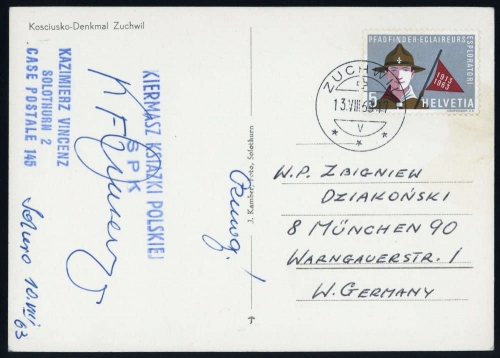 Kosciusko-Denkmal Zuchwil
KIERMASZ KSIĄŻKI POLSKIEJ
S P K
KAZIMIERZ VINCENZ
SOLOTHURN 2
CASE POSTALE 145
10.VIII
63
J. Kamber, Foto, Solothurn
PFADFINDER·ECLAIREURS
ESPLORATORI
1913
1963
5
HELVETIA
ZUCHWIL
13.VIII.63
W.P. ZBIGNIEW
DZIAKOŃSKI
8 MÜNCHEN 90
WARNGAUERSTR. 1
W. GERMANY